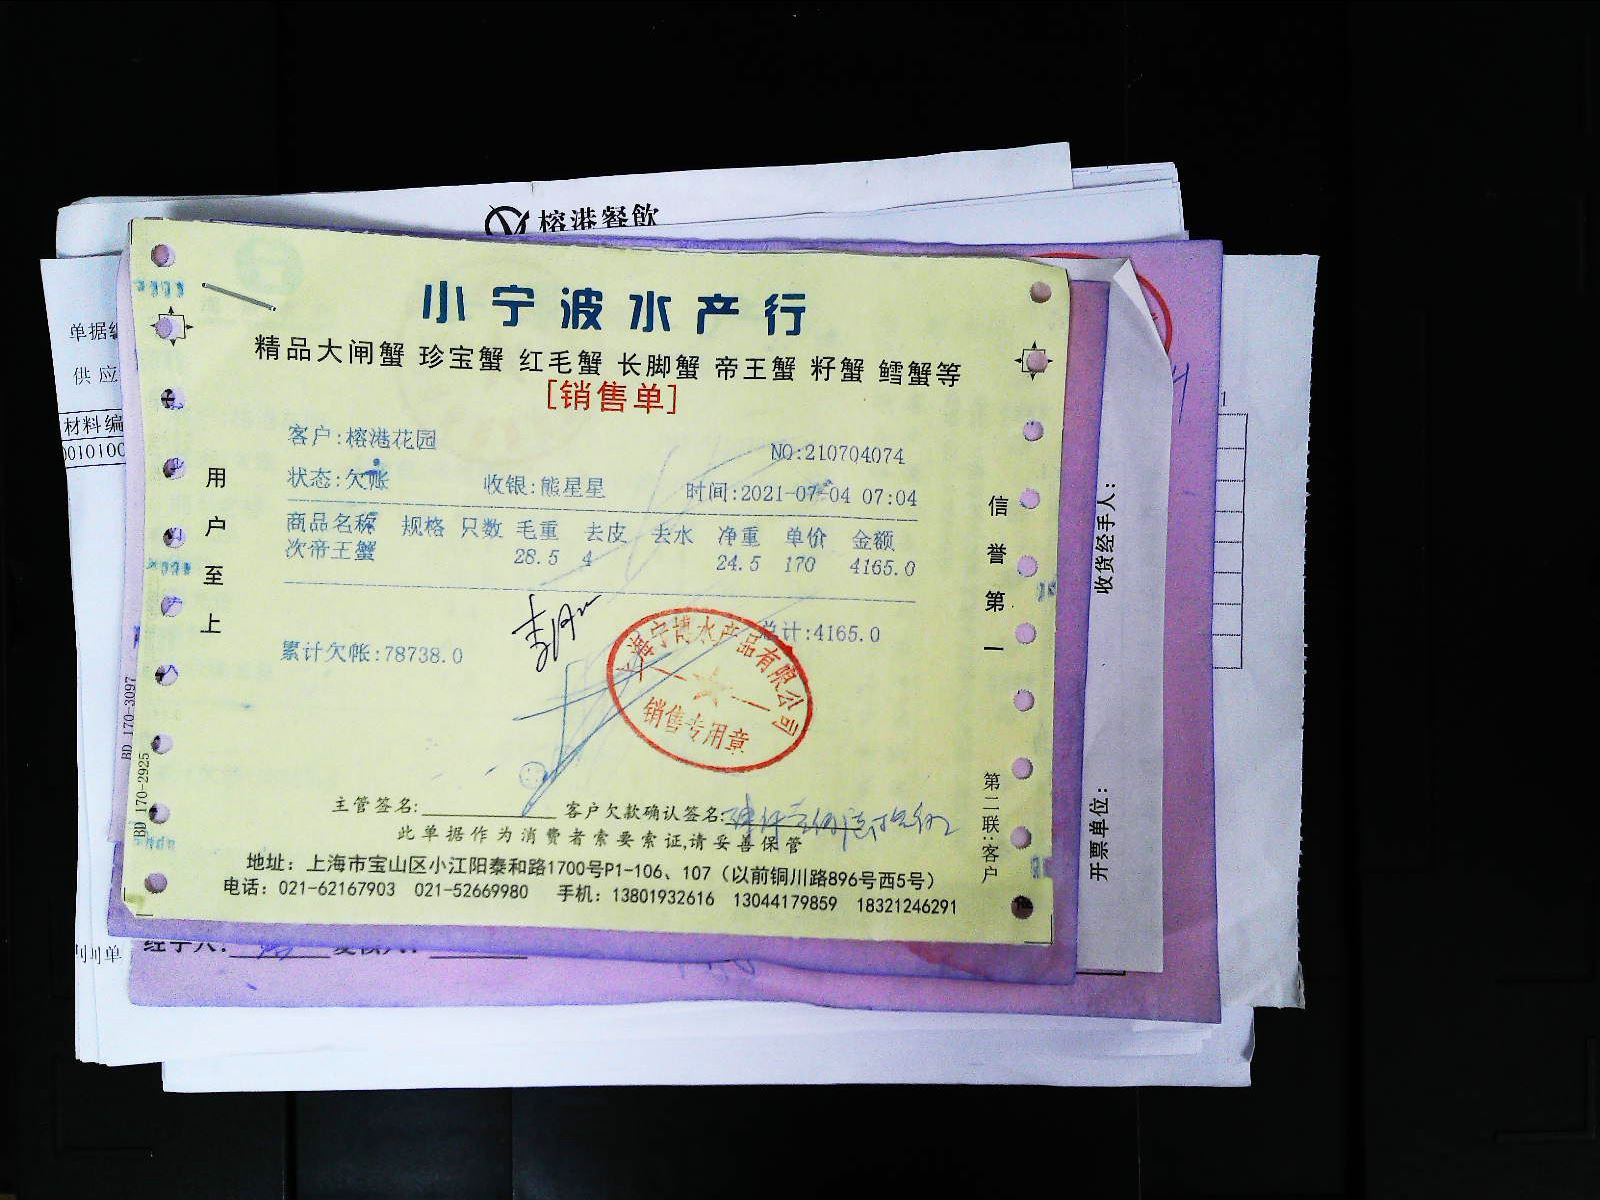 榕港餐飲
小宁波水产行
精品大闸蟹 珍宝蟹 红毛蟹 长脚蟹 帝王蟹 籽蟹 鳕蟹等
[销售单]
客户:榕港花园
NO:210704074
状态:欠账 收银:熊星星 时间:2021-07-04 07:04
商品名称 规格 只数 毛重 去皮 去水 净重 单价 金额
次帝王蟹 28.5 4 24.5 170 4165.0
总计:4165.0
累计欠帐:78738.0
上海宁博水产品有限公司
销售专用章
主管签名: 客户欠款确认签名:
此单据作为消费者索要索证,请妥善保管
地址：上海市宝山区小江阳泰和路1700号P1-106、107（以前铜川路896号西5号）
电话：021-62167903 021-52669980 手机：13801932616 13044179859 18321246291
用户至上
信誉第一
第二联:客户
BD 170-3097
BD 170-2925
单据
供应
材料编
0010100
收货经手人：
开票单位：
经手人：